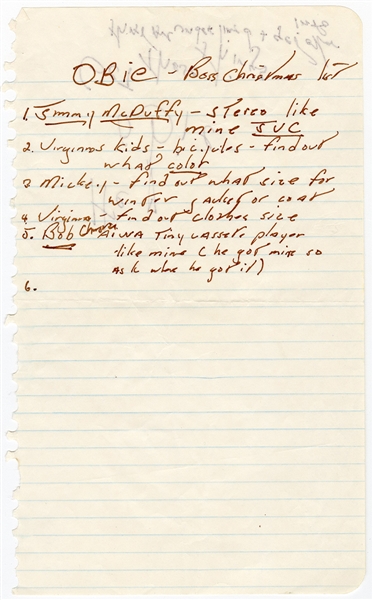 OBie - Boss Christmas list
1. Jimmy McDuffy - Stereo like
mine JVC
2. Virginias Kids - bicycles - find out
what color
3 Mickey - find out what size for
winter jacket or coat
4 Virginia - find out clothes size
5. Bob AiWA Tiny cassete player
like mine (he got mine so
ask where he got it)
6.